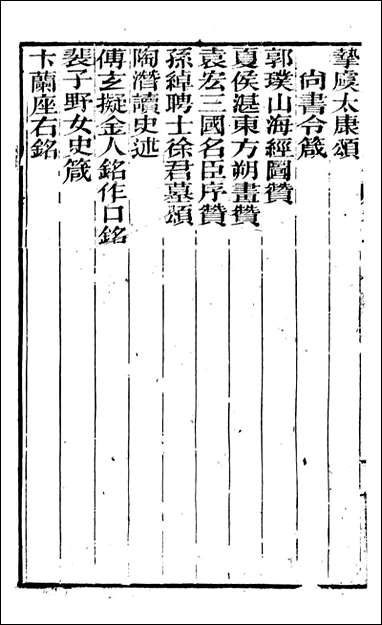 摯虞太康頌
尙書令箴
郭璞山海經圖贊
夏侯湛東方朔畫贊
袁宏三國名臣序贊
孫綽聘士徐君墓頌
陶潛讀史述
傅玄擬金人銘作口銘
裴子野女史箴
卞蘭座右銘